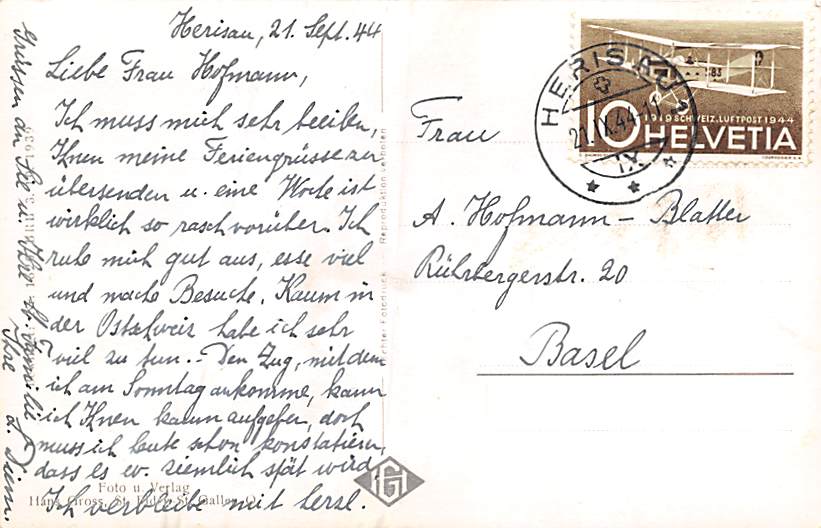 Herisau, 21. Sept. 44
Liebe Frau Hofmann,
Ich muss mich sehr beeilen,
Ihnen meine Feriengrüsse zu
übersenden u. eine Woche ist
wirklich so rasch vorüber. Ich
ruhe mich gut aus, esse viel
und mache Besuche. Kaum in
der Ostschweiz habe ich sehr
viel zu tun. - Den Zug, mit dem
ich am Sonntag ankomme, kann
ich Ihnen kaum aufgeben, doch
muss ich heute schon konstatieren,
dass es ev. ziemlich spät wird.
Ich verbleibe mit herzl.
Grüssen an Sie u. Ihre lb. Familie
Ihre L. Diem.
Foto u. Verlag
Hans Gross, St. Gallen O
Reproduktion verboten
HERISAU
21.IX.44
IX
1919 SCHWEIZ. LUFTPOST 1944
10 HELVETIA
Frau
A. Hofmann - Blatter
Rührbergerstr. 20
Basel